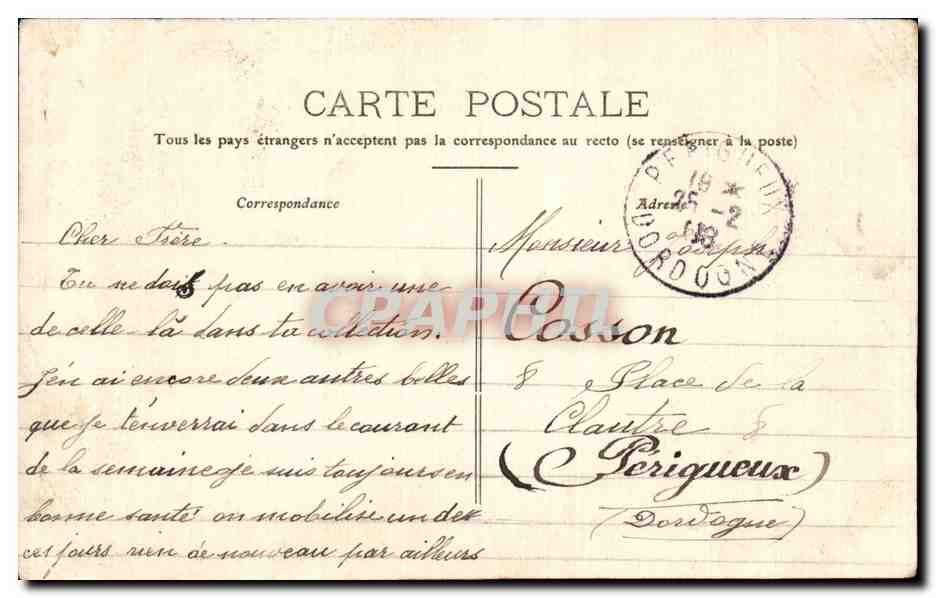 CARTE POSTALE
Tous les pays étrangers n'acceptent pas la correspondance au recto (se renseigner à la poste)
Correspondance
Cher Frère.
Tu ne dois pas en avoir une
de celle-là dans ta collection.
J'en ai encore deux autres belles
que je t'enverrai dans le courant
de la semaine je suis toujours en
bonne santé on mobilise un de
ces jours rien de nouveau par ailleurs
Adresse
Monsieur Joseph
Cosson
8 Place de la
Clautre 8
(Périgueux)
(Dordogne)
PERIGUEUX
DORDOGNE
CPAPHIL